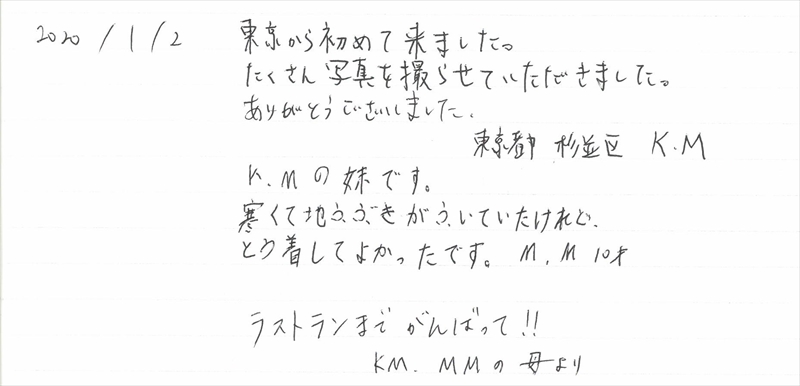 2020/1/2 東京から初めて来ました。
たくさん写真を撮らせていただきました。
ありがとうございました.
東京都 杉並区 K.M
K.Mの妹です。
寒くて地ふぶきがふいていたけれど、
とう着してよかったです。 M.M 10才
ラストランまで がんばって!!
KM. MMの母より